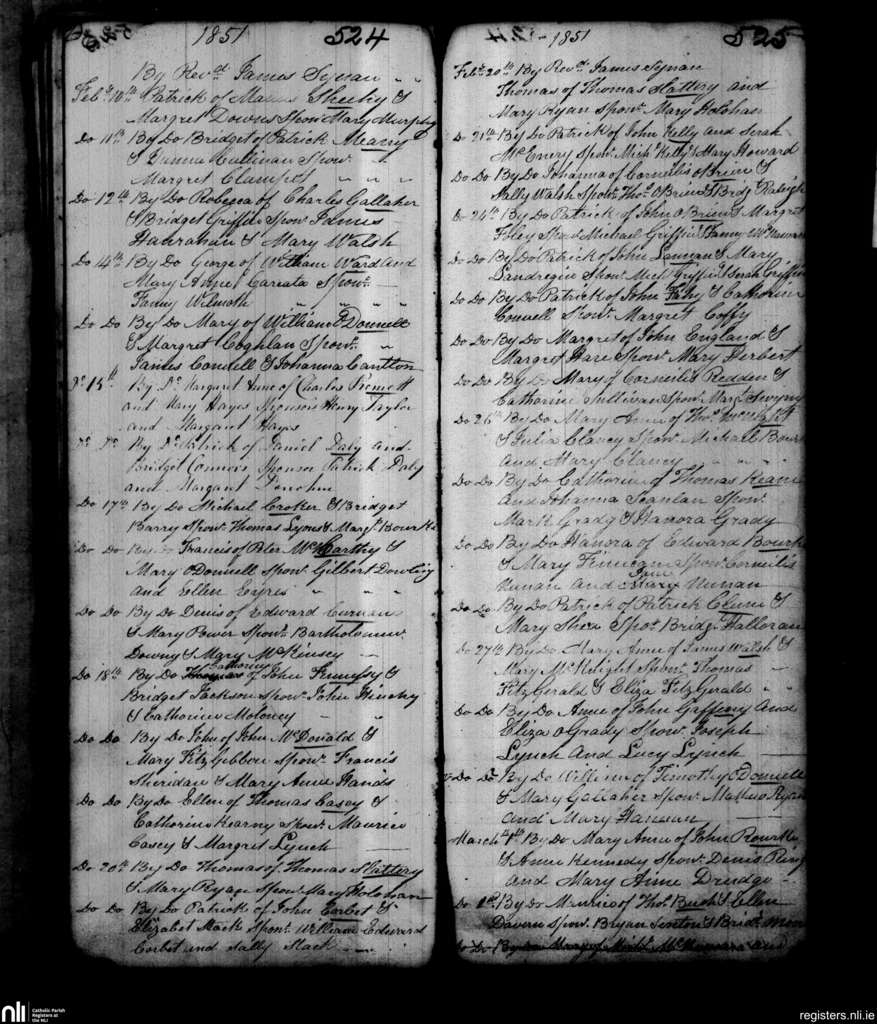 1851 524
By Revd. James Synan
Feby. 10th Patrick of Sheehy &
Margret Downs Spon Mary Murphy
Do 11th By Do Bridget of Patrick Meany
& Cullinan Spon.
Margret
Do 12th By Do Rebecca of Charles Gallaher
& Bridget Griffin Spon. James
Hanrahan & Mary Walsh
Do 14th By Do George of William Ward and
Mary Anne Spon.
Fanny Wilmoth
Do Do By Do Mary of William O Donnell
& Margret Coghlan Spon.
James Connell & Johanna Cantlon
Do 15th By Do Margaret Anne of Charles
and Mary Hayes Sponsors Henry Taylor
and Margaret Hayes
Do Do By Do Patrick of Daniel Daly and
Bridget Connors Sponsor Patrick Daly
and Margaret Donohue
Do 17th By Do Michael Croker & Bridget
Barry Spon. Thomas Lyons & Margt. Bourke
Do Do By Do Francis of Peter McCarthy &
Mary O Donnell Spon. Gilbert Dowling
and Ellen Eyres
Do Do By Do Denis of Edward
& Mary Power Spon. Bartholomew
Downy & Mary McKinsey
Do 18th By Do Catherine of John &
Bridget Jackson Spon. John
& Catherine Moloney
Do Do By Do John of John McDonald &
Mary FitzGibbon Spon. Francis
Sheridan & Mary Anne Hands
Do Do By Do Ellen of Thomas Casey &
Catherine Kearny Spon. Maurice
Casey & Margret Lynch
Do 20th By Do Thomas of Thomas Slattery
& Mary Ryan Spon. Mary Holohan
Do Do By Do Patrick of John Corbet &
Elizabet Stack Spon. William Edward
Corbet and Sally Stack
1851 525
Feby. 20th By Revd. James Synan
Thomas of Thomas Slattery and
Mary Ryan Spon. Mary Holohan
Do 21st By Do Patrick of John Kelly and Sarah
McEnery Spon. Michl. Kelly & Mary Howard
Do Do By Do Johanna of Cornelis O Brien &
Sally Walsh Spon. Thos. O Brien & Bridg. Raleigh
Do 24th By Do Patrick of John O Brien & Margret
Foley Spon. Michael Griffin & Fanny McNamara
Do Do By Do Patrick of John Lannan & Mary
Landregin Spon. Michl. Griffin & Sarah Griffin
Do Do By Do Patrick of John & Catherine
Connell Spon. Margret Coffy
Do Do By Do Margret of John England &
Margret Hare Spon. Mary Herbert
Do Do By Do Mary of Cornelis Redden &
Catherine Sullivan Spon. Margt. Sweyny
Do 26th By Do Mary Anne of Thos.
& Julia Clancy Spon. Michael Bourke
and Mary Clancy
Do Do By Do Catherine of Thomas Keane
and Johanna Scanlan Spon.
Mark Grady & Hanora Grady
Do Do By Do Hanora of Edward Bourke
& Mary Finnegan Spon. Cornelis
Nunan and Jane Nunan
Do Do By Do Patrick of Patrick Clune &
Mary Shea Spon. Bridg. Halloran
Do 27th By Do Mary Anne of James Walsh &
Mary McKnight Spon. Thomas
FitzGerald & Eliza FitzGerald
Do Do By Do Anne of John Gaffeny and
Eliza O Grady Spon. Joseph
Lynch and Lucy Lynch
Do Do By Do William of Timothy O Donnell
& Mary Gallaher Spon. Mathew Ryan
and Mary Hannan
March 1st By Do Mary Anne of John Rourke
& Anne Kennedy Spon. Denis Ring
and Mary Anne Drudge
Do 1st By Do Maurice of Thos. Bush & Ellen
Davern Spon. Bryan & Bridt.
Do Do By Do Mary of Michl. McNamara and
nli
Catholic Parish
Registers at
the NLI
registers.nli.ie